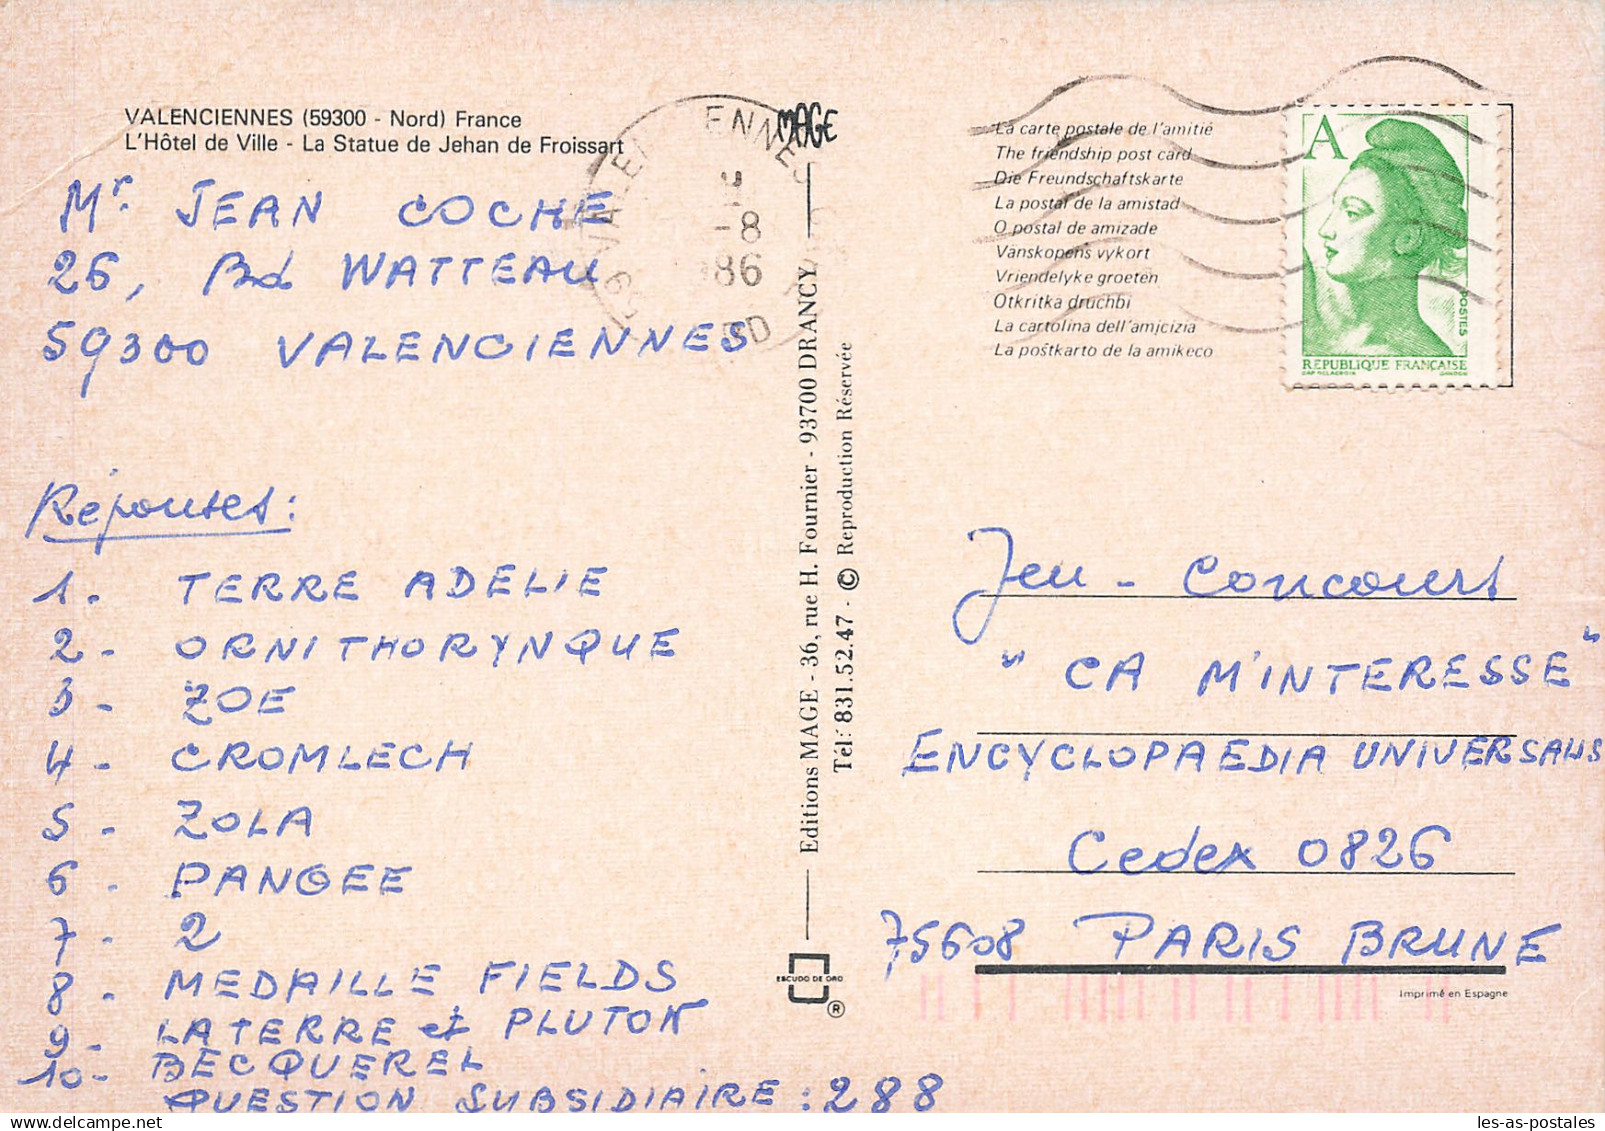 VALENCIENNES (59300 - Nord) France
L'Hôtel de Ville - La Statue de Jehan de Froissart
Mr. JEAN COCHE
26, Bd WATTEAU
59300 VALENCIENNES
Réponses :
1. TERRE ADELIE
2- ORNITHORYNQUE
3- ZOE
4- CROMLECH
5- ZOLA
6- PANGEE
7- 2
8- MEDAILLE FIELDS
9- LA TERRE et PLUTON
10- BECQUEREL
QUESTION SUBSIDIAIRE : 288
ENNES
-8
86
MAGE
Editions MAGE - 36, rue H. Fournier - 93700 DRANCY
Tél: 831.52.47 - © Reproduction Réservée
ESCUDO DE ORO
®
La carte postale de l'amitié
The friendship post card
Die Freundschaftskarte
La postal de la amistad
O postal de amizade
Vänskopens vykort
Vriendelyke groeten
Otkritka druchbi
La cartolina dell'amicizia
La poŝtkarto de la amikeco
A
POSTES
REPUBLIQUE FRANÇAISE
Jeu - Concours
"CA M'INTERESSE"
ENCYCLOPAEDIA UNIVERSALIS
Cedex 0826
75608 PARIS BRUNE
Imprimé en Espagne
les-as-postales